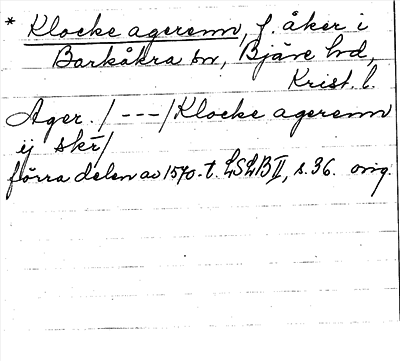 * Klocke agerenn, f. åker i
Barkåkra sn, Bjäre hd,
Krist. l.
Ager. / --- / Klocke agerenn
ej skr /
förra delen av 1570-t. LSLB II, s. 36. orig.